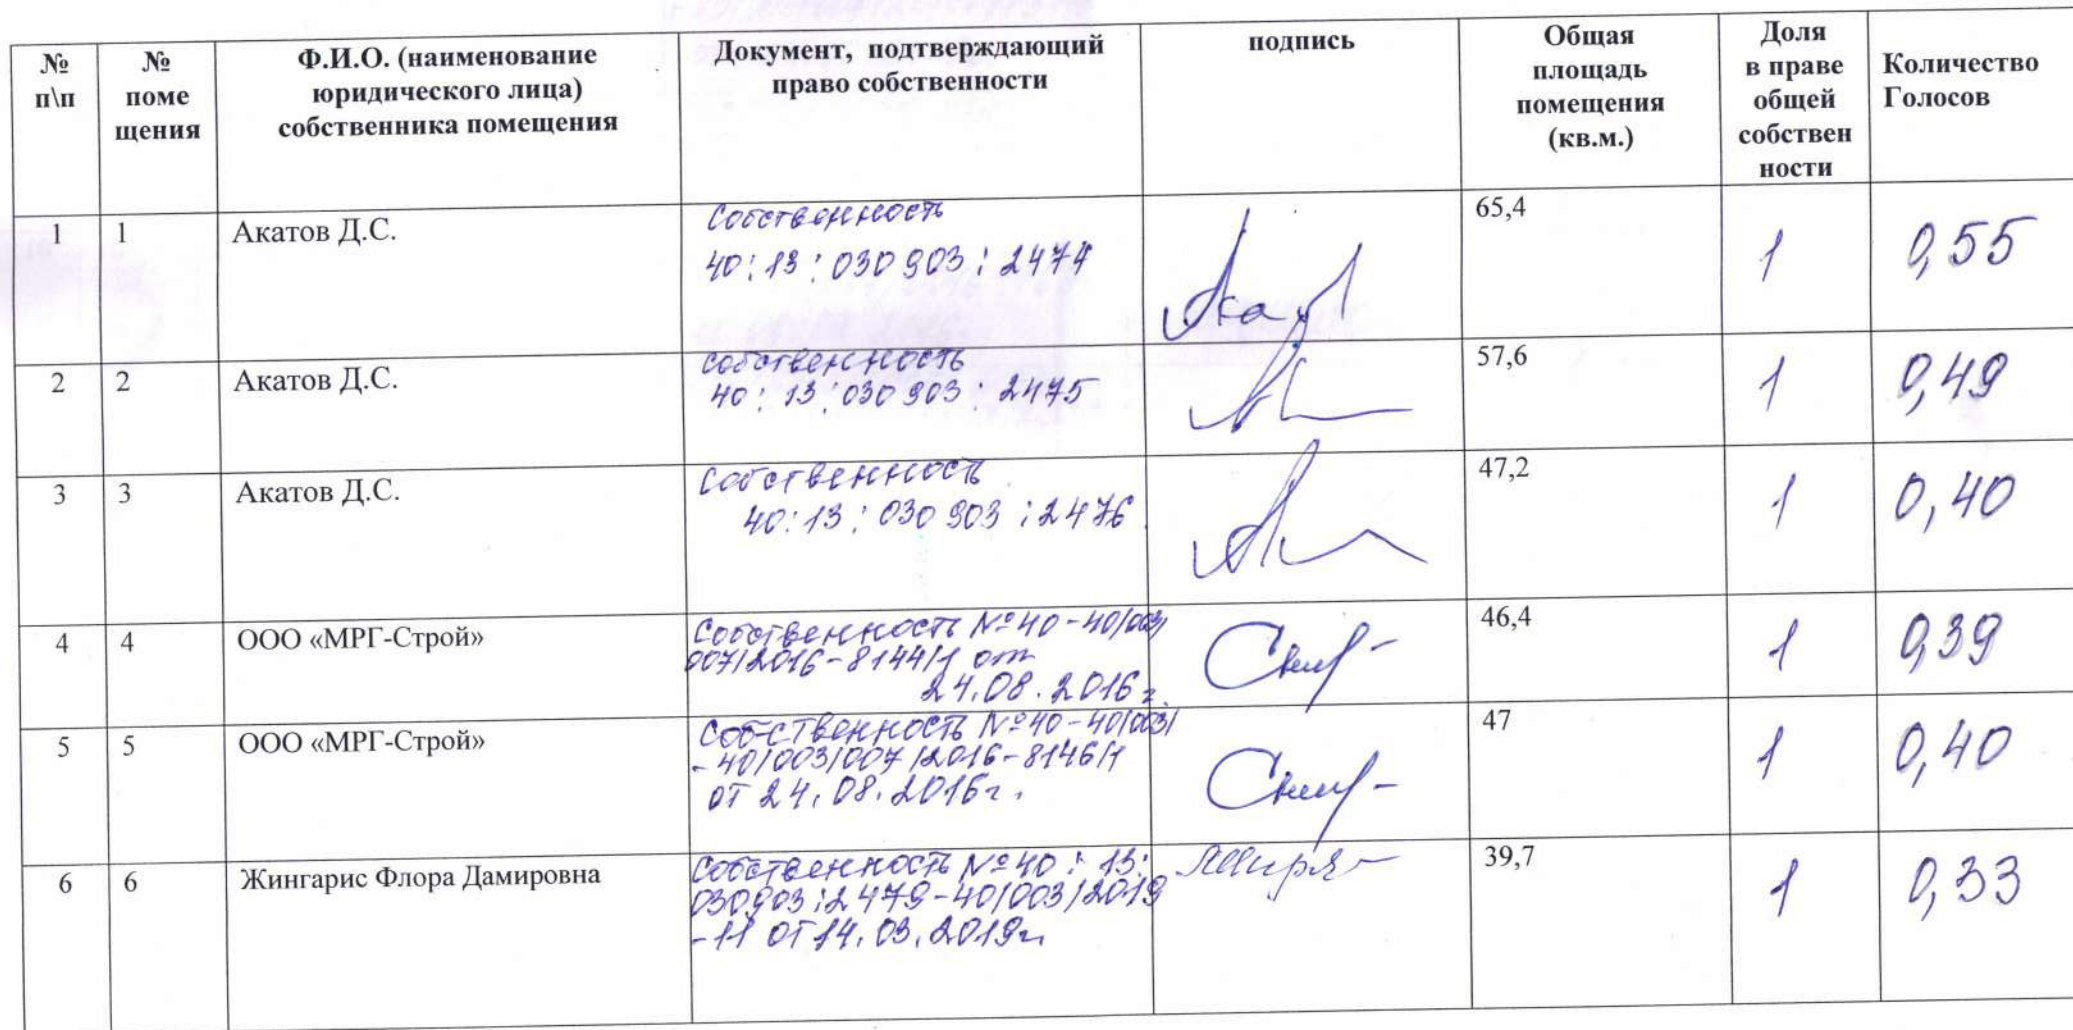 № п\п
№ поме щения
Ф.И.О. (наименование юридического лица) собственника помещения
Документ, подтверждающий право собственности
подпись
Общая площадь помещения (кв.м.)
Доля в праве общей собствен ности
Количество Голосов
1
1
Акатов Д.С.
Собственность
40:13:030903:2474
65,4
1
0,55
2
2
Акатов Д.С.
собственность
40:13:030903:2475
57,6
1
0,49
3
3
Акатов Д.С.
Собственность
40:13:030903:2476
47,2
1
0,40
4
4
ООО «МРГ-Строй»
Собственность №40-40/003/
007/2016-8144/1 от
24.08.2016г.
46,4
1
0,39
5
5
ООО «МРГ-Строй»
Собственность №40-40/003/
-40/003/007/2016-8146/1
от 24.08.2016г.
47
1
0,40
6
6
Жингарис Флора Дамировна
Собственность №40:13:
030903:2479-40/003/2019
-11 от 14.03.2019г
39,7
1
0,33